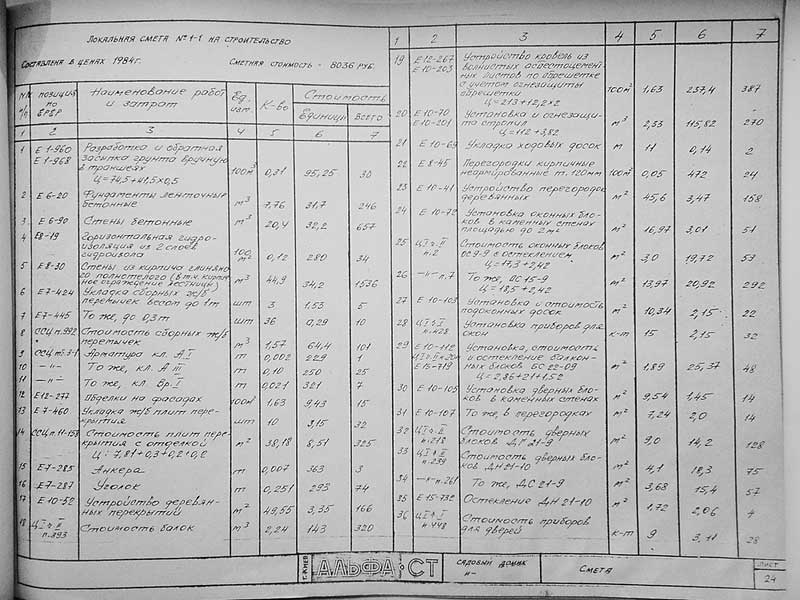 Локальная смета №1-1 на строительство
Составлена в ценах 1984г. Сметная стоимость - 8036 руб.
№№ п/п позиция по ЕРЕР Наименование работ и затрат Ед. изм. К-во Стоимость Единицы Всего
1 2 3 4 5 6 7
1 Е1-960 Разработка и обратная
Е1-968 засыпка грунта вручную
в траншеях 100м³ 0,31 95,25 30
Ц=74,5+41,5×0,5
2 Е6-20 Фундаменты ленточные
бетонные м³ 7,76 31,7 246
3 Е6-90 Стены бетонные м³ 20,4 32,2 657
4 Е8-19 Горизонтальная гидро-
изоляция из 2 слоев
гидроизола 100м² 0,12 280 34
5 Е8-30 Стены из кирпича глиняно-
го полнотелого (в т.ч. кирпич-
ное ограждение лестницы) м³ 44,9 34,2 1536
6 Е7-424 Укладка сборных ж/б
перемычек весом до 1т шт 3 1,53 5
7 Е7-445 То же, до 0,3т шт 36 0,29 10
8 ССЦ п.992 Стоимость сборных ж/б
перемычек м³ 1,57 64,4 101
9 ССЦ т5.3-1 Арматура кл. А I т 0,002 229 1
10 -"- То же, кл. А III т 0,10 250 25
11 -"- То же, кл. Вр. I т 0,021 321 7
12 Е12-277 Отделки на фасадах 100м² 1,63 9,43 15
13 Е7-460 Укладка ж/б плит пере-
крытия шт 10 3,15 32
14 ССЦ п.11-158 Стоимость плит пере-
крытия с отделкой м² 38,18 8,51 325
Ц=7,81+0,3+0,2+0,2
15 Е7-285 Анкера т 0,007 363 3
16 Е7-287 Уголок т 0,251 293 74
17 Е10-52 Устройство деревян-
ных перекрытий м² 49,55 3,35 166
18 Ц I ч II
п.393 Стоимость балок м³ 2,24 143 320
1 2 3 4 5 6 7
19 Е12-267 Устройство кровель из
Е10-203 волнистых асбестоцемент-
ных листов по обрешетке
с учетом огнезащиты
обрешетки 100м² 1,63 237,4 387
Ц=213+12,2×2
20 Е10-70 Установка и огнезащи-
Е10-201 та стропил м³ 2,33 115,82 270
Ц=112+3,82
21 Е10-69 Укладка ходовых досок м 11 0,14 2
22 Е8-45 Перегородки кирпичные
неармированные т. 120мм 100м² 0,05 472 24
23 Е10-41 Устройство перегородок
деревянных м² 45,6 3,47 158
24 Е10-72 Установка оконных бло-
ков в каменных стенах
площадью до 2м² м² 16,97 3,01 51
25 Ц I ч II
п.2 Стоимость оконных блоков
ОС9-9 с остеклением м² 3,0 19,72 59
Ц=17,3+2,42
26 -"- п.7 То же, ОС 15-9 м² 13,97 20,92 292
Ц=18,5+2,42
27 Е10-103 Установка и стоимость
подоконных досок м² 10,34 2,15 22
28 Ц I ч I
п.428 Установка приборов для
окон к-т 15 2,15 32
29 Е10-112 Установка, стоимость
Ц I ч II и остекление балкон-
Е15-719 ных блоков БС 22-09 м² 1,89 25,37 48
Ц=2,86+21+1,52
30 Е10-105 Установка дверных бло-
ков в каменных стенах м² 9,54 1,45 14
31 Е10-107 То же, в перегородках м² 7,24 2,0 14
32 Ц I ч II
п.218 Стоимость дверных
блоков ДГ 21-9 м² 9,0 14,2 128
33 Ц I ч II
п.239 Стоимость дверных бло-
ков ДН 21-10 м² 4,1 18,3 75
34 -"- п.261 То же, ДС 21-9 м² 3,68 15,4 57
35 Е15-732 Остекление ДН 21-10 м² 1,72 2,06 4
36 Ц I ч I
п.448 Стоимость приборов
для дверей к-т 9 3,11 28
г. Киев АЛЬФА·СТ САДОВЫЙ ДОМИК Смета Лист
24